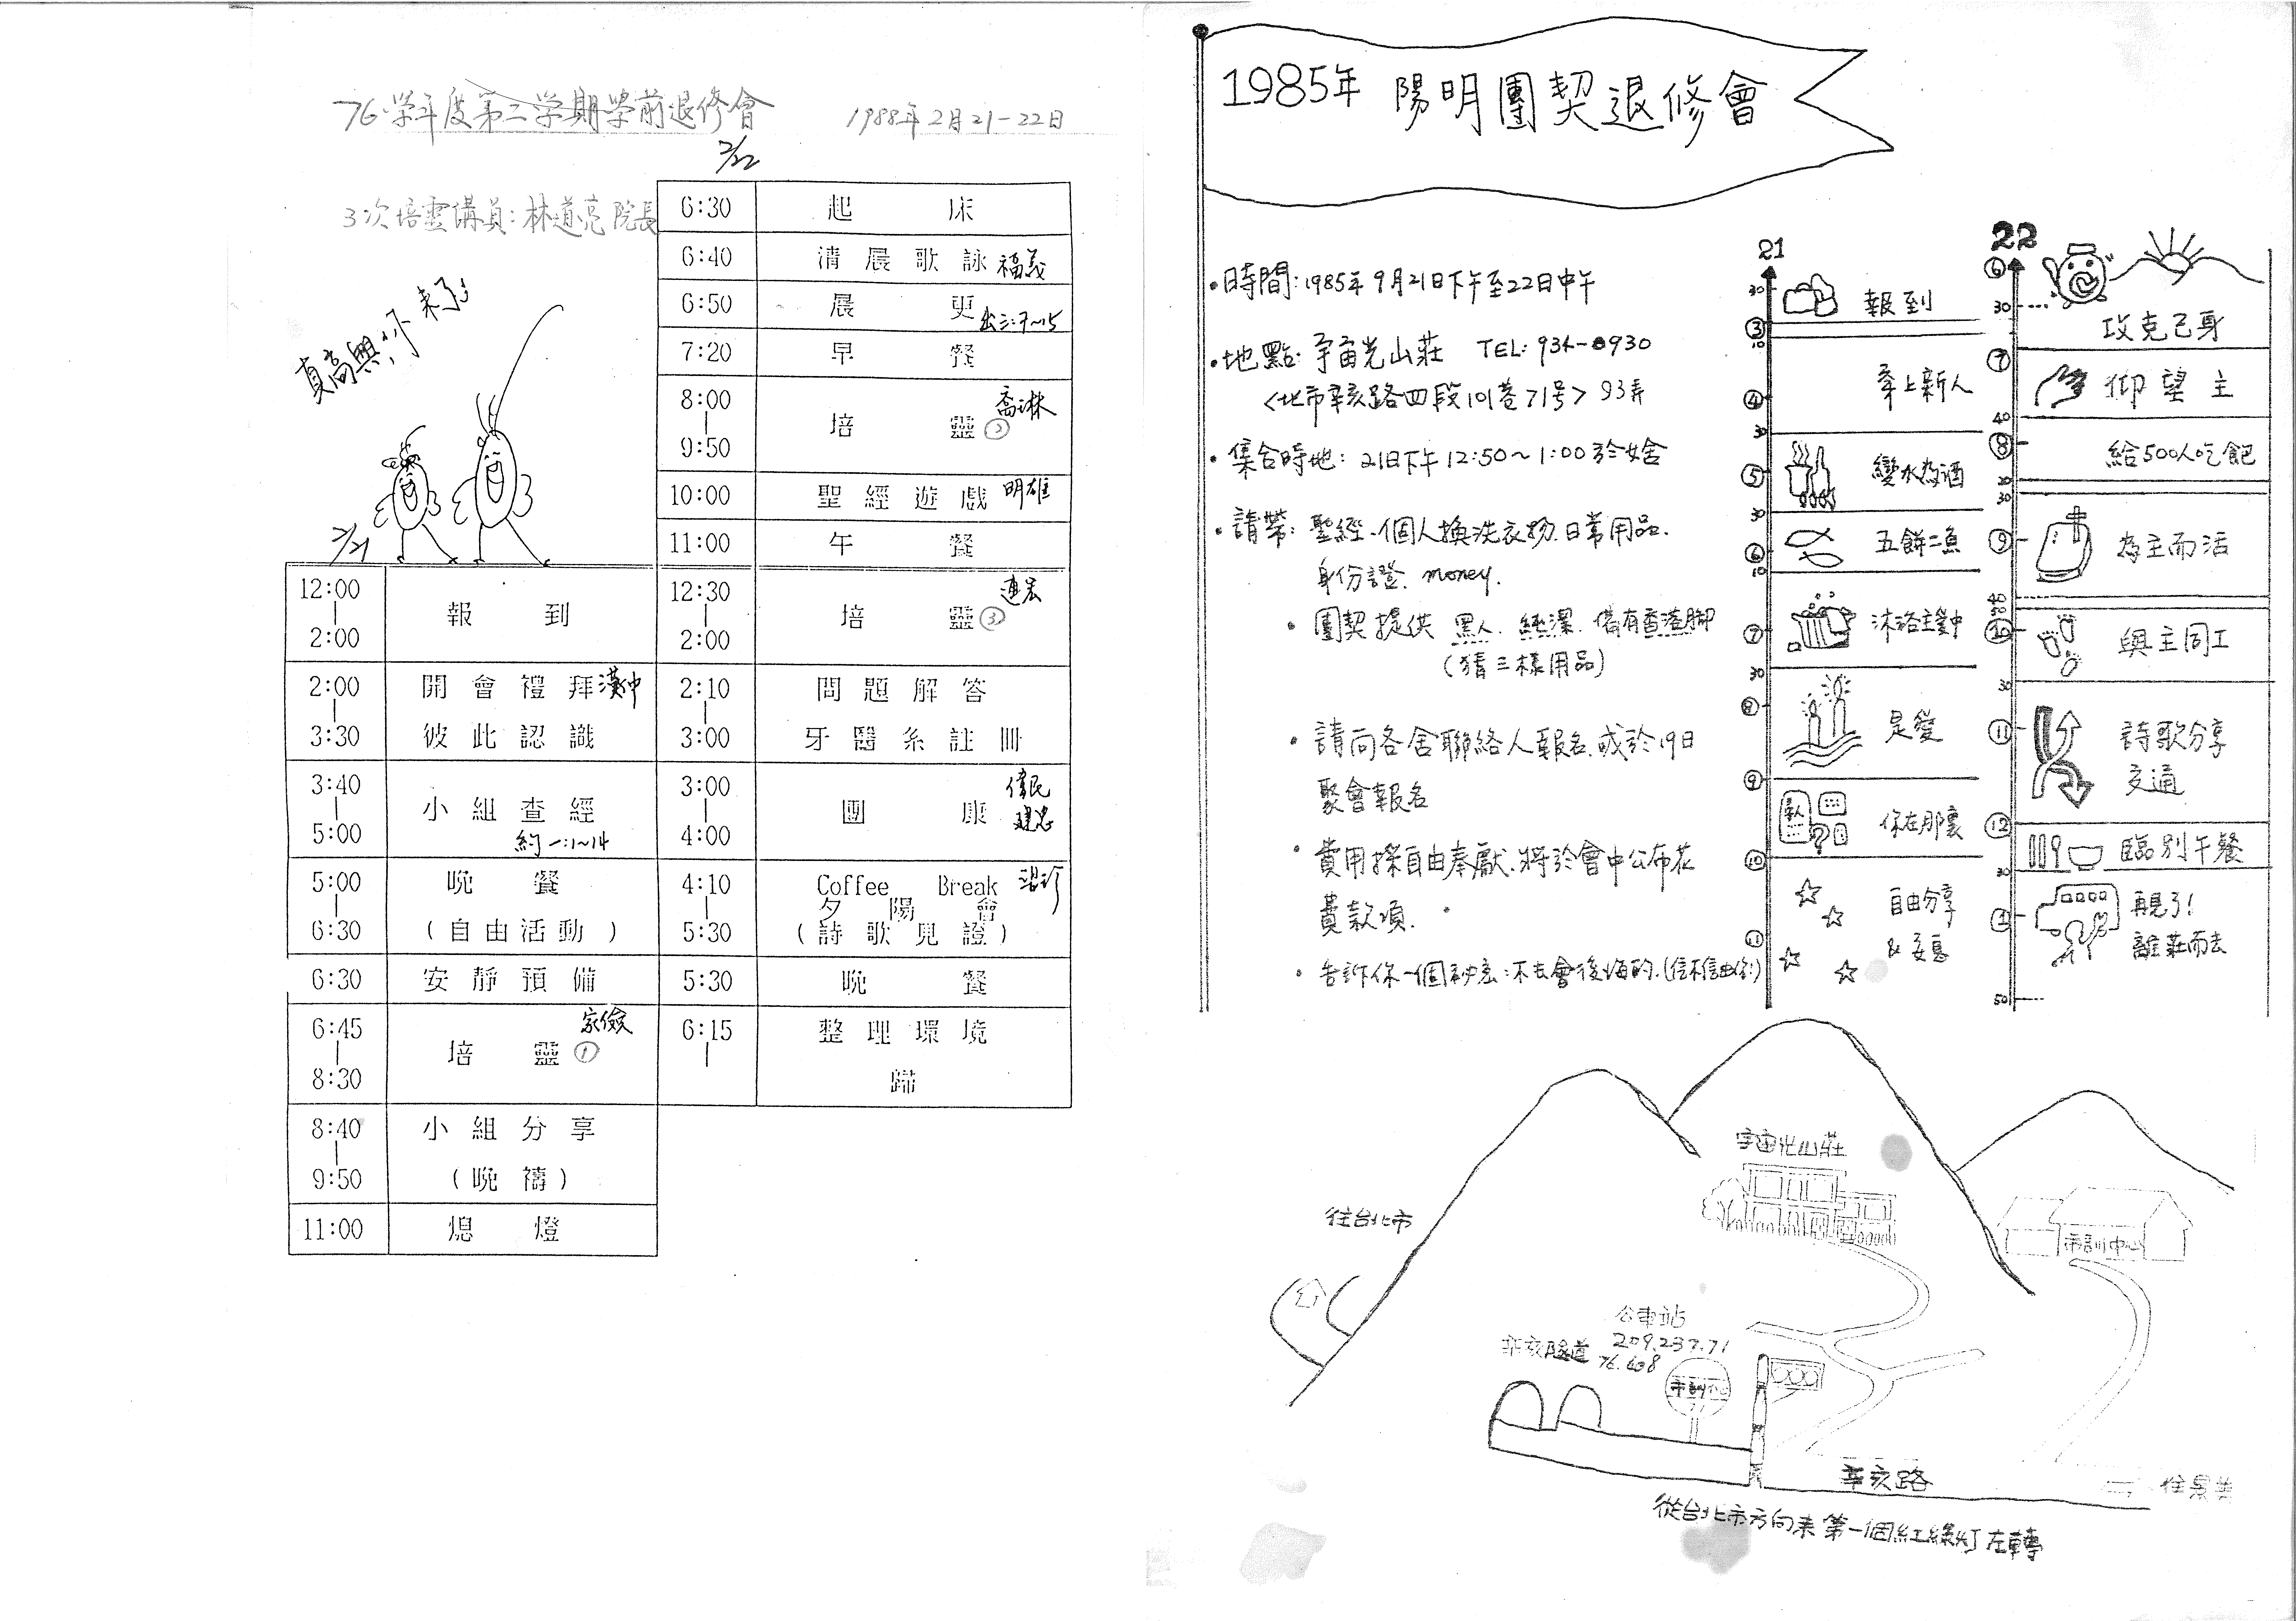 76學年度第二學期學前退修會
1988年2月21-22日
3次培靈講員:林道亮院長
真高興,你來了
2/21
12:00 | 2:00 報到
2:00 | 3:30 開會禮拜 漢中
彼此認識
3:40 | 5:00 小組查經
約一:1~14
5:00 | 6:30 晚餐
(自由活動)
6:30 安靜預備
6:45 | 8:30 培靈① 家儉
8:40 | 9:50 小組分享
(晚禱)
11:00 熄燈
2/22
6:30 起床
6:40 清晨歌詠 福義
6:50 晨更 出三:7~15
7:20 早餐
8:00 | 9:50 培靈② 喬琳
10:00 聖經遊戲 明雄
11:00 午餐
12:30 | 2:00 培靈③
2:10 | 3:00 問題解答
牙醫系註冊
3:00 | 4:00 團康 偉民
4:10 | 5:30 Coffee Break
夕陽會
(詩歌見證)
5:30 晚餐
6:15 | 整理環境
歸
1985年 陽明團契退修會
•日時間:1985年9月21日下午至22日中午
•地點:宇宙光山莊 TEL:934-0930
<北市辛亥路四段101巷71号> 93弄
•集合時地:21日下午12:50~1:00於女舍
•請帶:聖經.個人換洗衣物.日常用品.
身份證.money.
•團契提供 黑人.純潔.備有香港腳
(猜三樣用品)
•請向各舍聯絡人報名.或於19日
聚會報名
•費用採自由奉獻.將於會中公布花
費款項.
•告訴你一個秘密:不去會後悔的.(信不信由你!)
21
30
報到
③
10
穿上新人
④
30
變水為酒
⑤
30
五餅二魚
⑥
10
沐浴主愛中
⑦
30
是愛
⑧
⑨
你在那裏
⑩
自由分享
&安息
⑪
22
⑥
30
攻克己身
⑦
仰望主
40
⑧
給500人吃飽
20
30
為主而活
⑨
⑩
與主同工
30
詩歌分享
交通
⑪
⑫
臨別午餐
30
再見了!
離莊而去
①
50
宇宙光山莊
往台北市
市訓中心
公車站
209.237.71
76.608
辛亥隧道
辛亥路
往景美
從台北市方向來第一個紅綠灯左轉